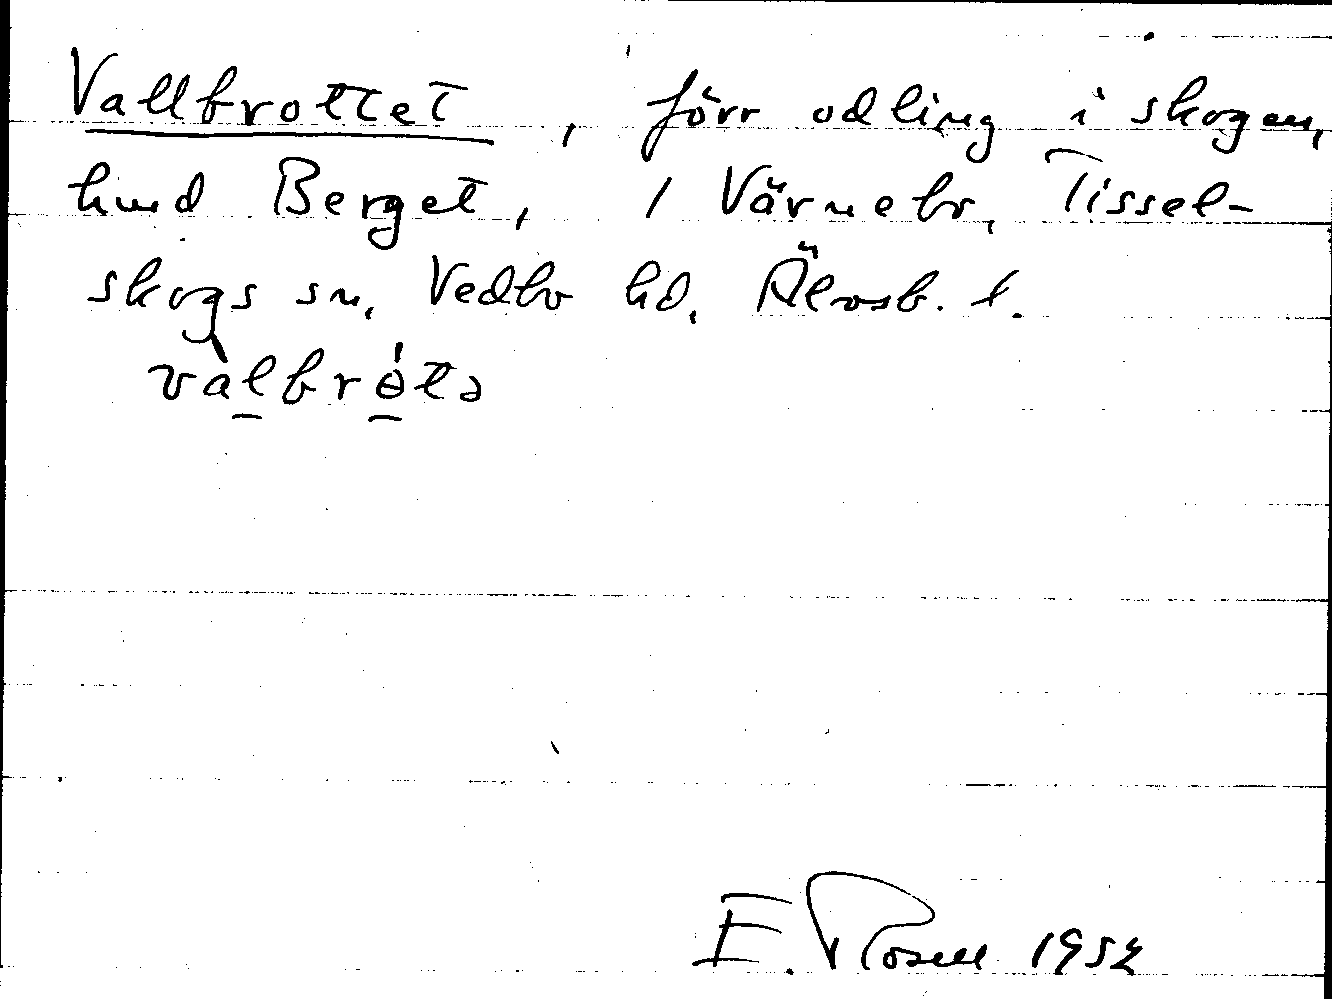 Vallbrottet, förr odling i skogen,
hmd Berget, 1 Värnebo, Tissel-
skogs sn, Vedbo hd, Älvsb. l.
vàl̠brө̠́tə
E. Rosell 1952